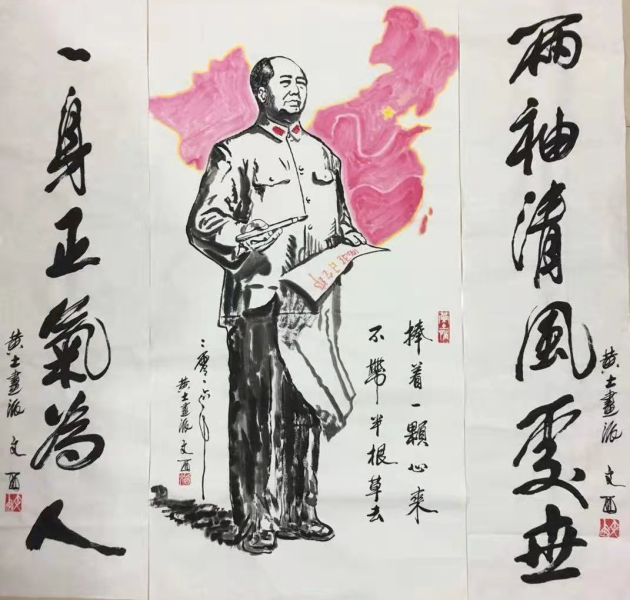 兩袖清風處世
黄土畫派 文西
捧着一顆心來
不帶半根草去
黄土畫派 文西
一身正氣為人
黄土畫派 文西